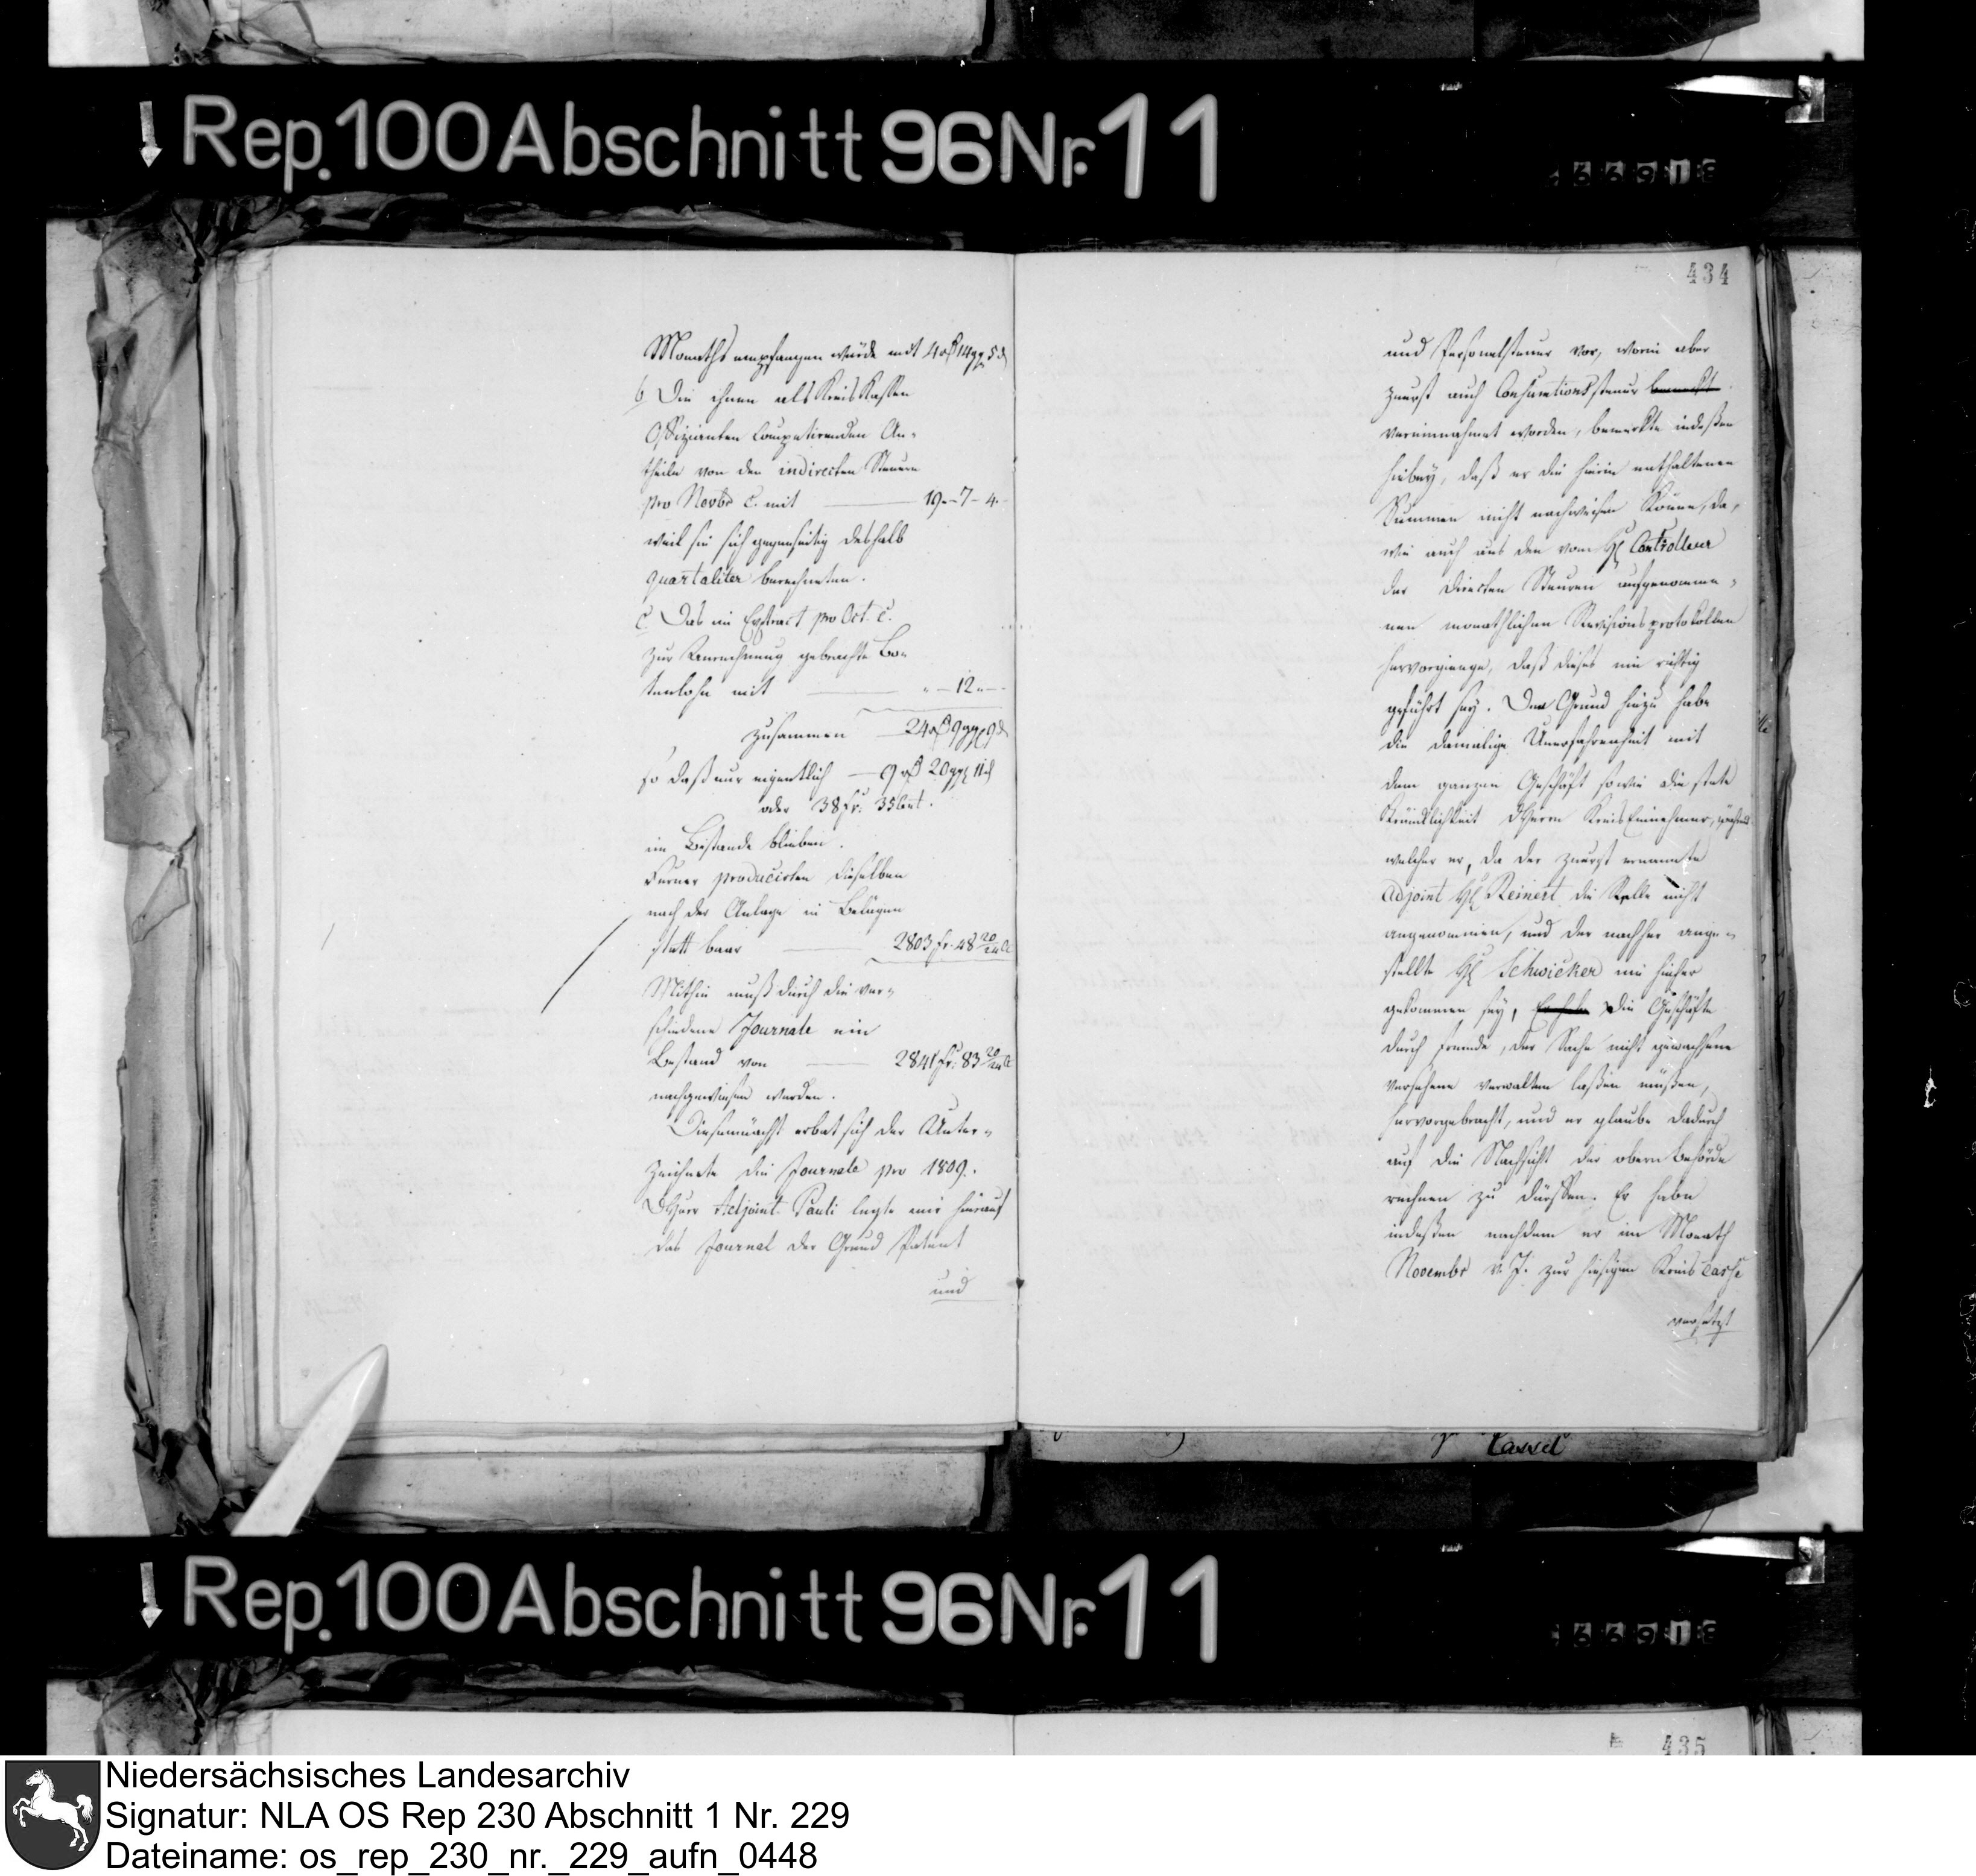 Rep. 100 Abschnitt 96 Nr. 11
Monaths empfangen würde mit 4 rß 14 ggr 5 d
b. Die ihnen als Kreis Kassen
Offizianten competirenden An-
theile von den indirecten Steuern
pro Novbr c. mit 19 - 7 - 4.
weil sie sich gegenseitig deshalb
quartaliter berechneten.
c Das im Extract pro Oct. c.
zur Berechnung gebrachte Bo-
tenlohn mit " - 12 " -
zusammen 24 rß 9 ggr 9 d
so daß nur eigentlich 9 rß 20 ggr 11 d
oder 38 fr. 35 Cent.
im Bestande blieben.
Ferner producirten dieselben
nach der Anlage in Belägen
statt baar 2803 fr. 48 20/24 C
Mithin muß durch die ver-
schiedene Journale ein
Bestand von 2841 fr. 83 20/24 C
nachgewiesen werden.
Diesemnächst erbat sich der Unter-
zeichnete die Journale pro 1809.
D Herr Adjoint Pauli legte mir hierauf
das Journal der Grund Patent
und
434
und Personalsteuer vor, worin aber
zuerst auch Consumtionssteuer bemerkt
vereinnahmt worden, bemerkte indeßen
hiebey, daß er die hierin enthaltenen
Summen nicht nachweisen könne, da,
wie auch aus den vom H. Controlleur
der directen Steuren aufgenomme-
nen monathlichen Revisionsprotokollen
hervorgienge, daß dieses nie richtig
geführt sey. Den Grund hiezu habe
die damalige Unerfahrenheit mit
dem ganzen Geschäft sowie die stete
Kränklichkeit d Herrn Kreis Einnehmer,
welcher er, da der zuerst ernannte
adjoint H. Reinert die Stelle nicht
angenommen, und der nachher ange-
stellte H. Schwicker nie hieher
gekommen sey, Er habe die Geschäfte
durch fremde, der Sache nicht gewachsene
verwalten laßen müßen,
hervorgebracht, und er glaube dadurch
auf die Nachsicht der obern Behörde
rechnen zu dürffen. Er habe
indeßen nachdem er im Monath
Novembr v. J. zur hiesigen Kreis Casse
versetzt
Cassel
Rep. 100 Abschnitt 96 Nr. 11
435
Niedersächsisches Landesarchiv
Signatur: NLA OS Rep 230 Abschnitt 1 Nr. 229
Dateiname: os_rep_230_nr._229_aufn_0448